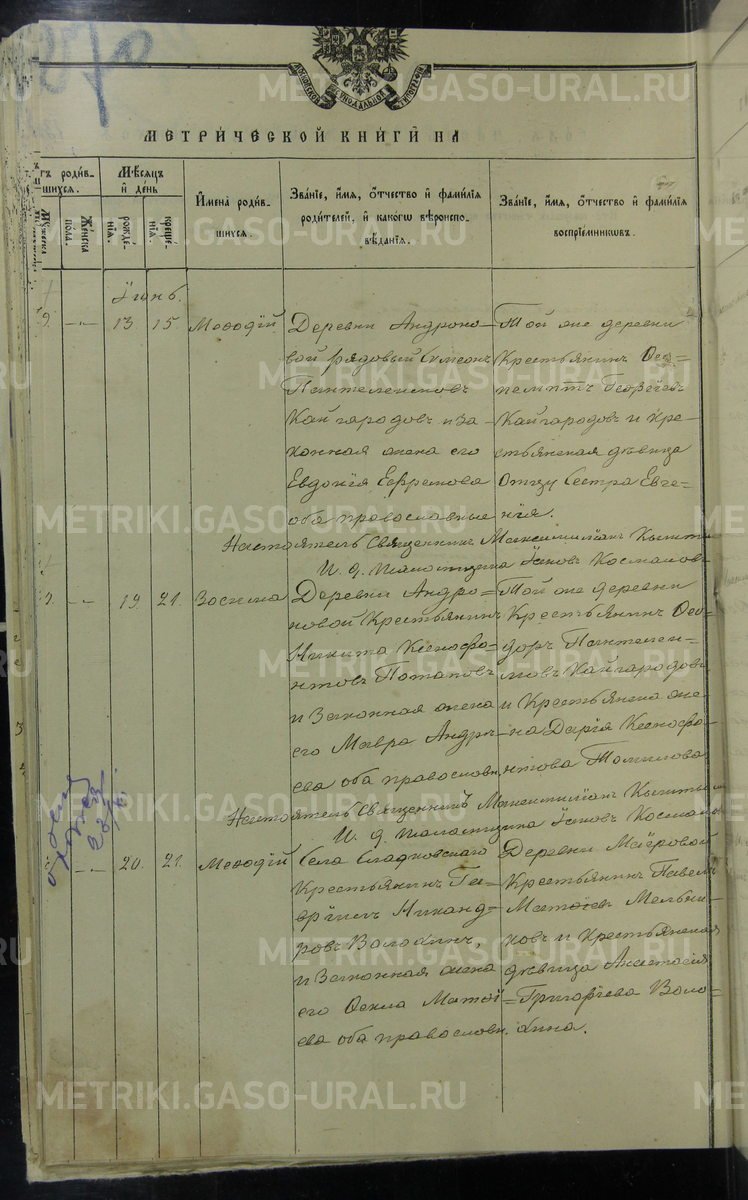 870
МОСКОВСКОЙ СѴНОДАЛЬНОЙ ТИПОГРАФІИ
МЕТРИ́ЧЕСКОЙ КНИ́ГИ НА
родив-
шихся.
Мѣсяцъ
и день
Мужеска
Же́нска
пола.
рожде́-
нія.
креще́-
нія.
Имена родив-
шихся.
Зва́ніе, и́мя, о́тчество и фами́лія
роди́телей, и како́гѡ вѣроиспо-
вѣ́данія.
Зва́ніе, и́мя, о́тчество и фами́лія
воспріе́мникѡвъ.
Іюнь.
9. 13. 15. Меѳодій
Деревни Андроно-
вой рядовый Симеонъ
Пантелеимовъ
Кайгородовъ и за-
конная жена его
Евдокія Ефремова
оба православные
Той же деревни
Крестьянинъ
Георгіевъ
Кайгородовъ и кре-
стьянская дѣвица
Отцу Сестра Евге-
нія.
Настоятель Священникъ Максимиліанъ
И. д. псаломщика Іаковъ Космаковъ
19. 21.
Деревни Андро-
новой Крестьянинъ
Никита Ксенофо-
нтовъ Потаповъ
и Законная жена
его Мавра Андре-
ева оба православн.
Той же деревни
Крестьянинъ Ѳео-
доръ Пантелеи-
мовъ Кайгородовъ
и Крестьянска же-
на Дарія Ксенофо-
нтова Томилова.
Настоятель Священникъ Максимиліанъ
И. д. псаломщика Іаковъ
20. 21. Меѳодій
Села Сладковскаго
Крестьянинъ Га-
вріилъ Никанд-
ровъ Волохинъ,
и Законная жена
его Ѳекла Матѳі-
ева оба православн.
Деревни
Крестьянинъ Павелъ
Матѳіевъ Мельни-
ковъ и Крестьянская
дѣвица Анастасія
Григоріева Воло-
хина.
METRIKI.GASO-URAL.RU